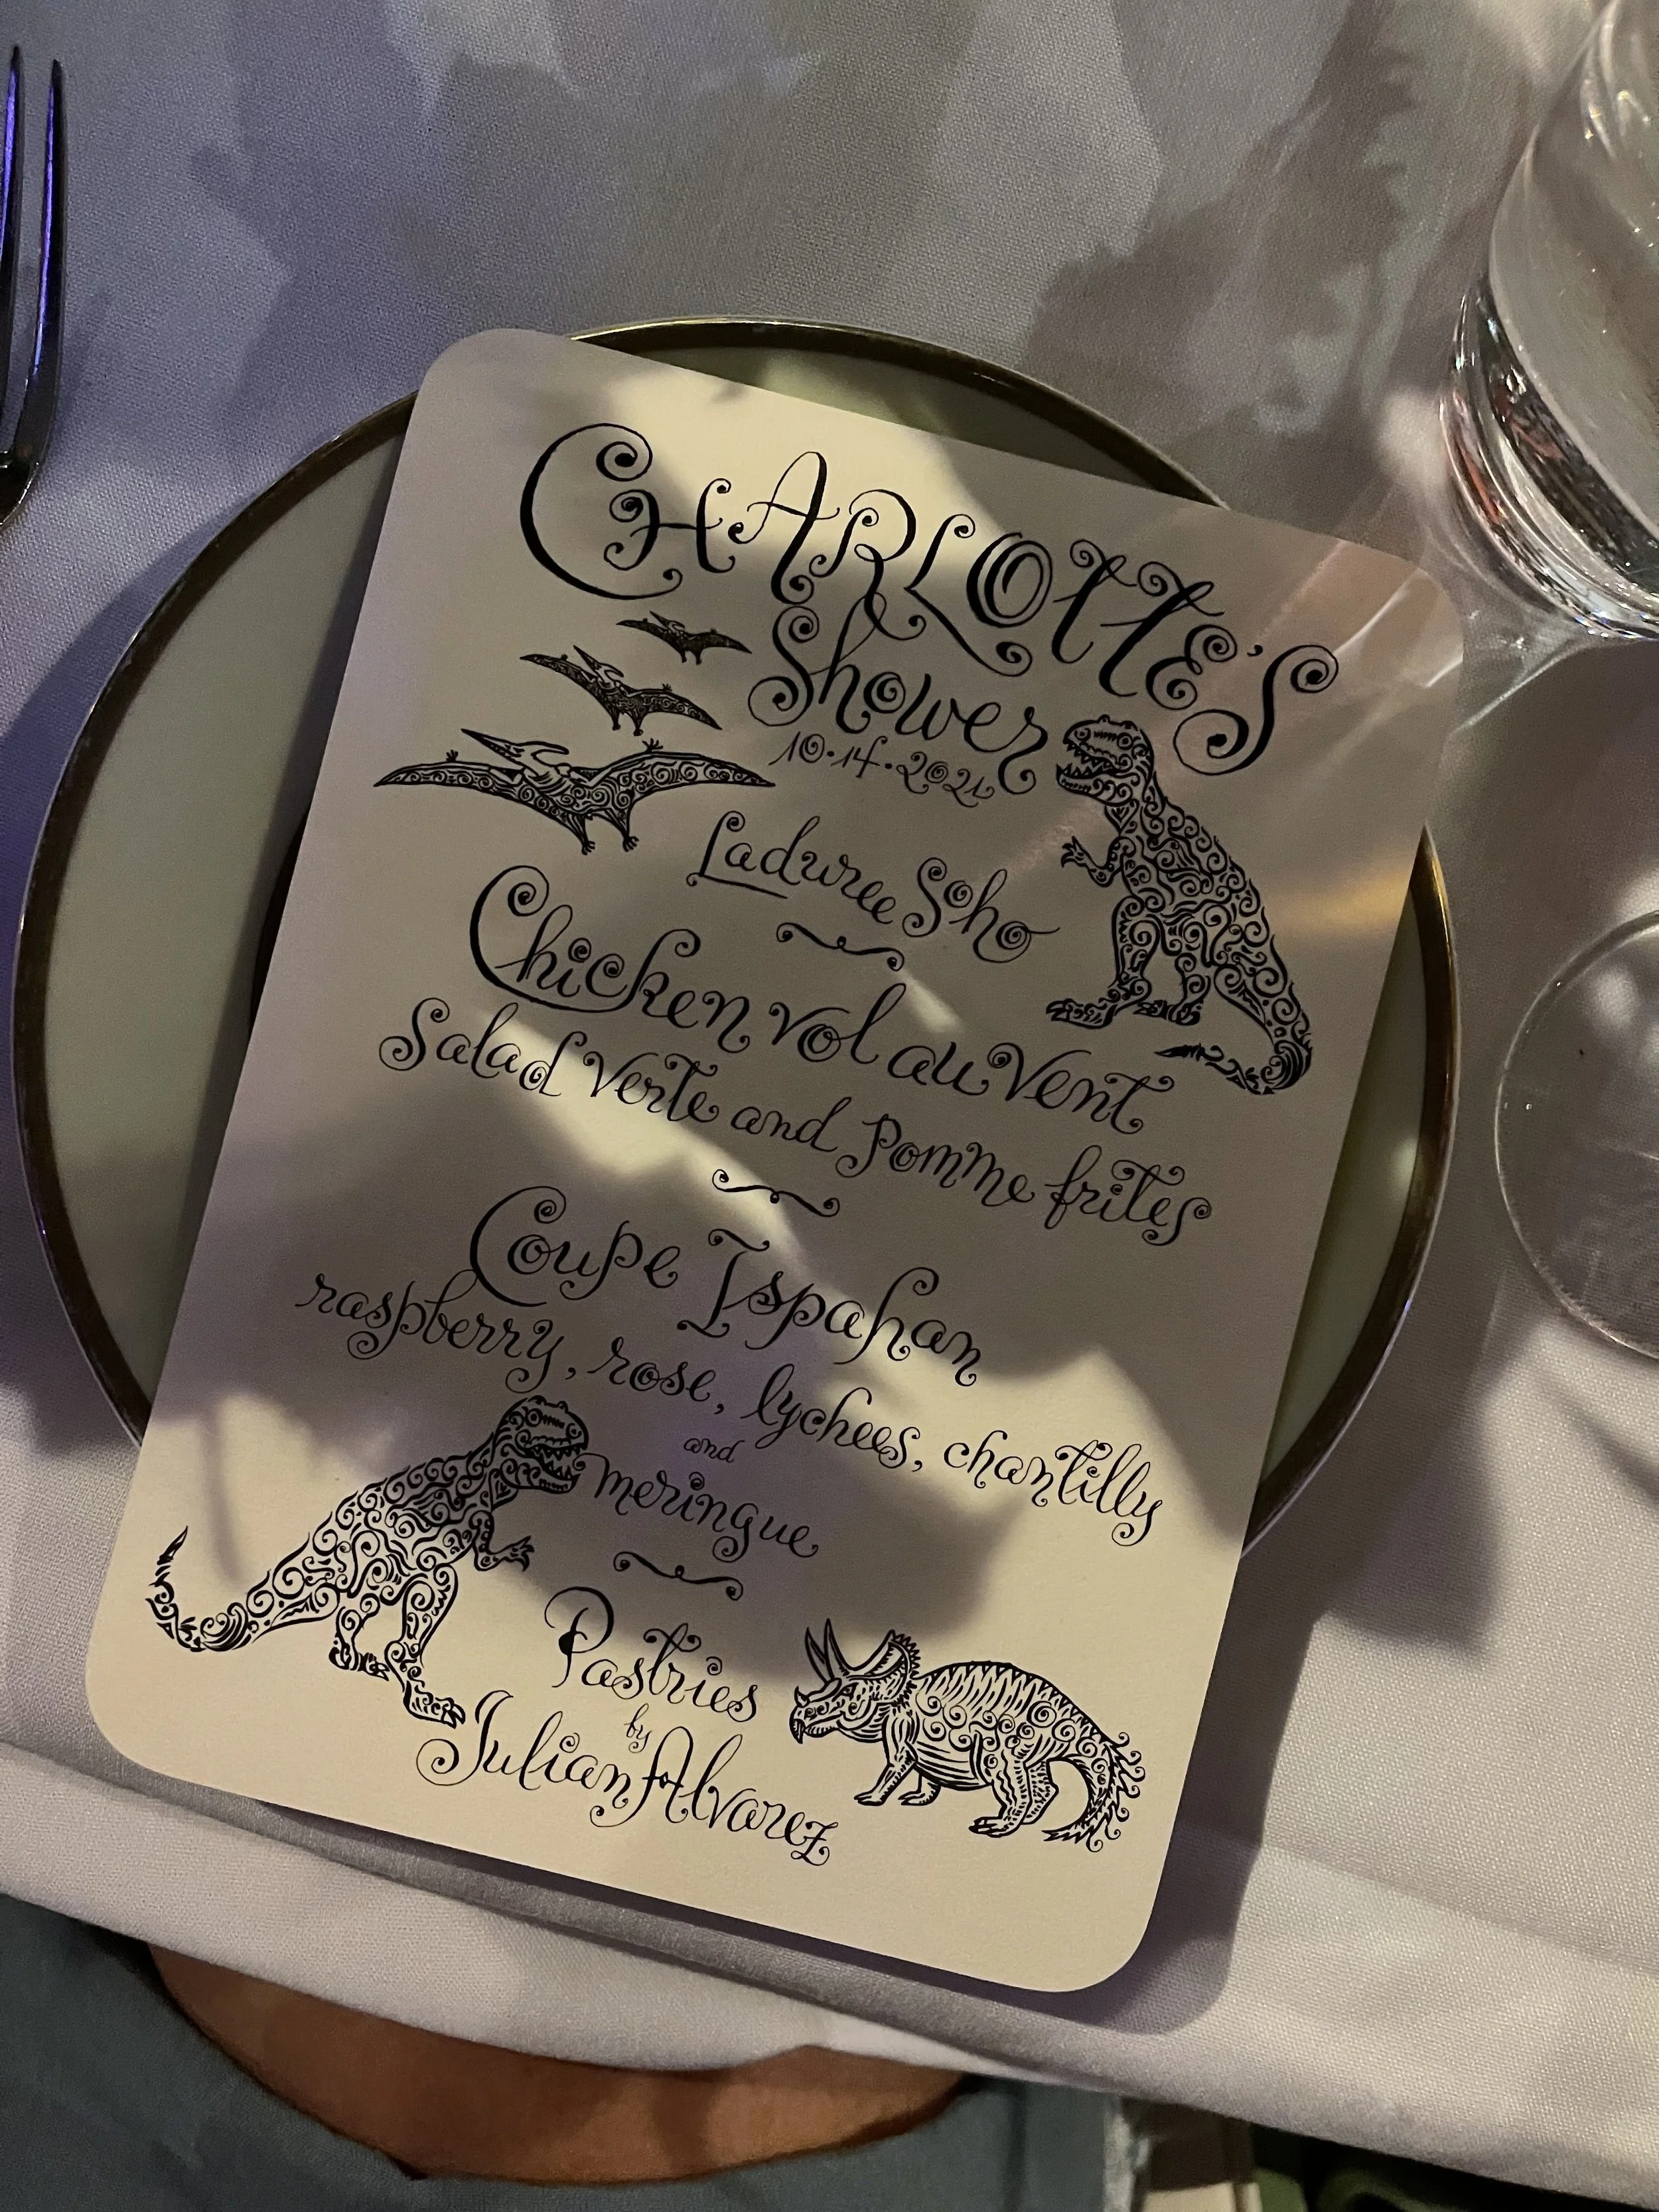 CHARLOTTE'S
Shower
10·14·2021
Laduree Soho
Chicken vol au Vent
Salad Verte and Pomme frites
Coupe Ispahan
raspberry, rose, lychees, chantilly
and
meringue
Pastries
by
Julian Alvarez